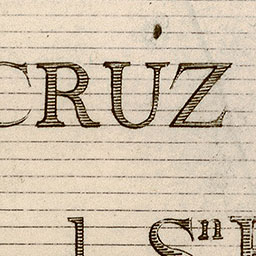 CRUZ
l Sn